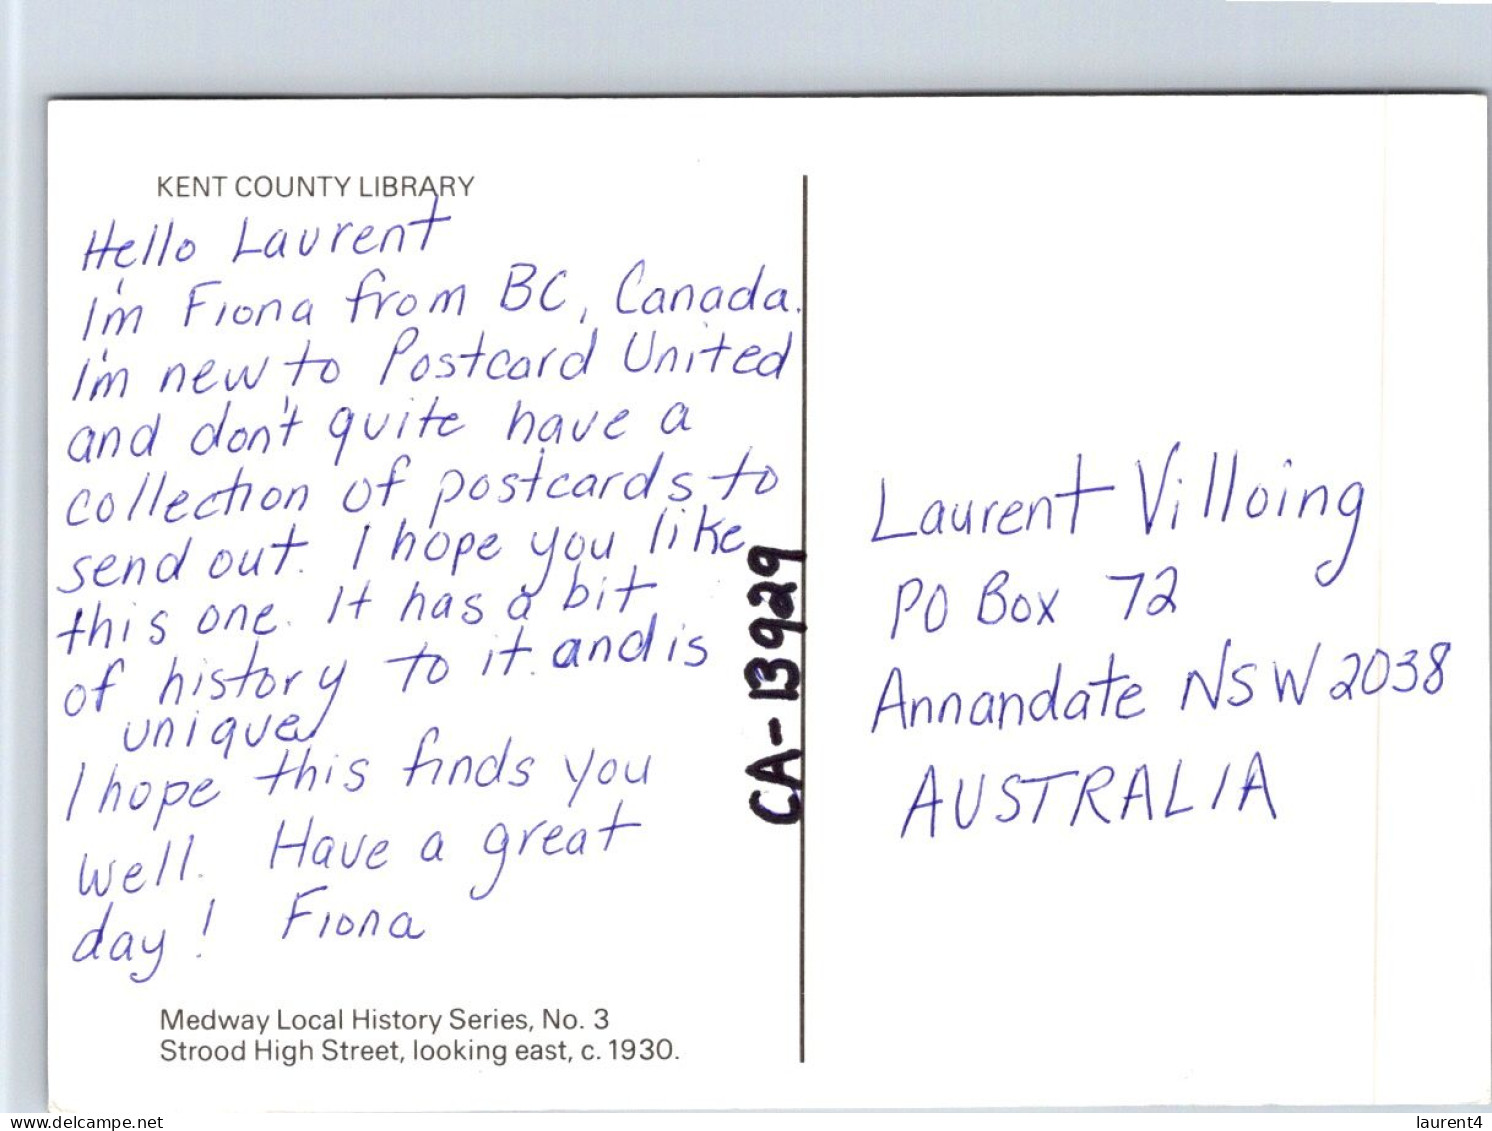 KENT COUNTY LIBRARY
Hello Laurent
I'm Fiona from BC, Canada.
I'm new to Postcard United
and don't quite have a
collection of postcards to
send out. I hope you like
this one. It has a bit
of history to it. and is
unique
I hope this finds you
well. Have a great
day! Fiona
Medway Local History Series, No. 3
Strood High Street, looking east, c. 1930.
CA-13929
Laurent Villoing
PO Box 72
Annandate NSW 2038
AUSTRALIA
delcampe.net
laurent4